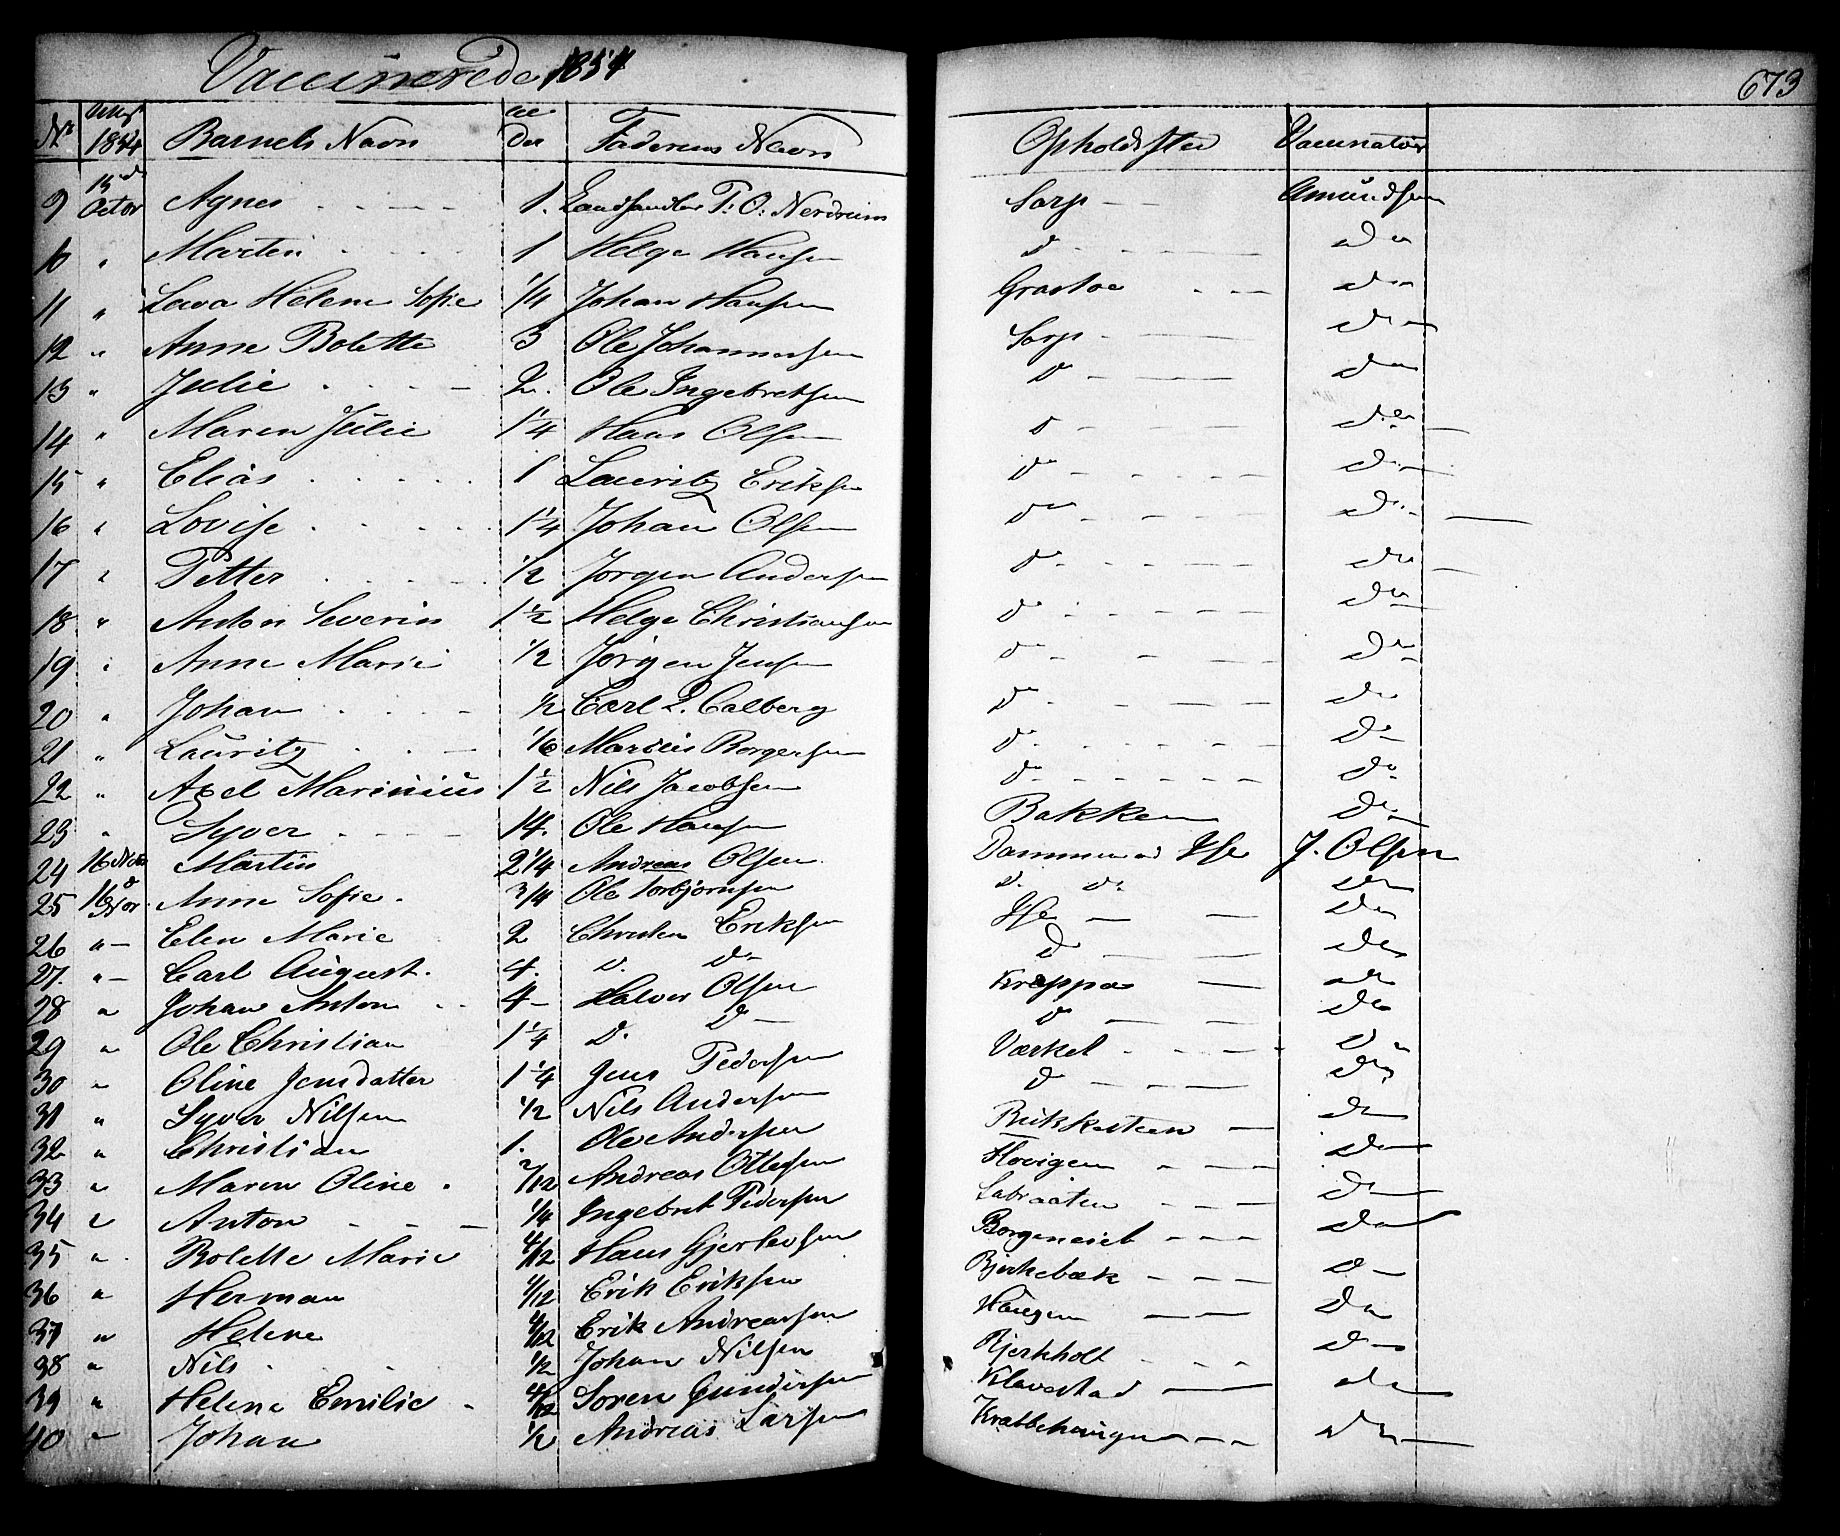 Vaccinerede 1854
673
No 1854 Barnets Navn Alder Faderens Navn Opholdssted Vaccinateur
9 15de Octor Agnes 1. Landhandler P: O: Nerdrum Sarp Amundsen
10 " Martin 1 Helge Hansen do do
11 " Lava Helene Sofie 1/4 Johan Hansen do
12 " Anne Bolette 3 Ole Johannessen Sarp do
13 " Julie 2. Ole Ingebretsen do do
14 " Maren Julie 1 1/4 Hans Olsen do do
15 " Elias 1 Lauritz Eriksen do do
16 " Lovise 1 1/4 Johan Olsen do do
17 " Petter 1/2 Jørgen Andersen do do
18 " Anton Severin 1 1/2 Helge Christiansen do do
19 " Anne Marie 1/2 Jørgen Jensen do do
20 " Johan 1/2 Carl P. Calberg do do
21 " Lauritz 1/6 Marius Borgersen do do
22 " Axel Marinius 1 1/2 Nils Jacobsen do do
23 " Syver 14. Ole Hansen Bakken do
24 16 Martin 2 1/4 Andreas Olsen Dammen Ise J. Olsen
25 16 Nor. Anne Sofie. 3/4 Ole Torbjørnsen do do do
26 " Elen Marie 2 Christen Eriksen Ise do
27. " Carl August. 4. do do do do
28 " Johan Anton 4 Halvor Olsen Kreppa do
29 " Ole Christian 1 1/4 do do do do
30 " Oline Jensdatter 1 1/4 Jens Pedersen Værket do
31 " Syver Nilsen 1/2 Nils Andersen do do
32 " Christian 1. Ole Andersen Bukkesteen do
33 " Maren Oline 2/12 Andreas Ottesen Hovigen do
34 " Anton 1/4 Ingebret Pedersen Labraaten do
35 " Bolette Marie 4/12 Hans Gjerlovsen Borgeneiet do
36 " Herman 4/12 Erik Eriksen Bjerkebæk do
37 " Helene 4/12 Erik Andreassen Haugen do
38 " Nils 1/2 Johan Nilsen Bjerkholt do
39 " Helene Emilie 4/12 Søren Gundersen Klavestad do
40 " Johan 1/2 Andreas Larsen Krabbehaugen do